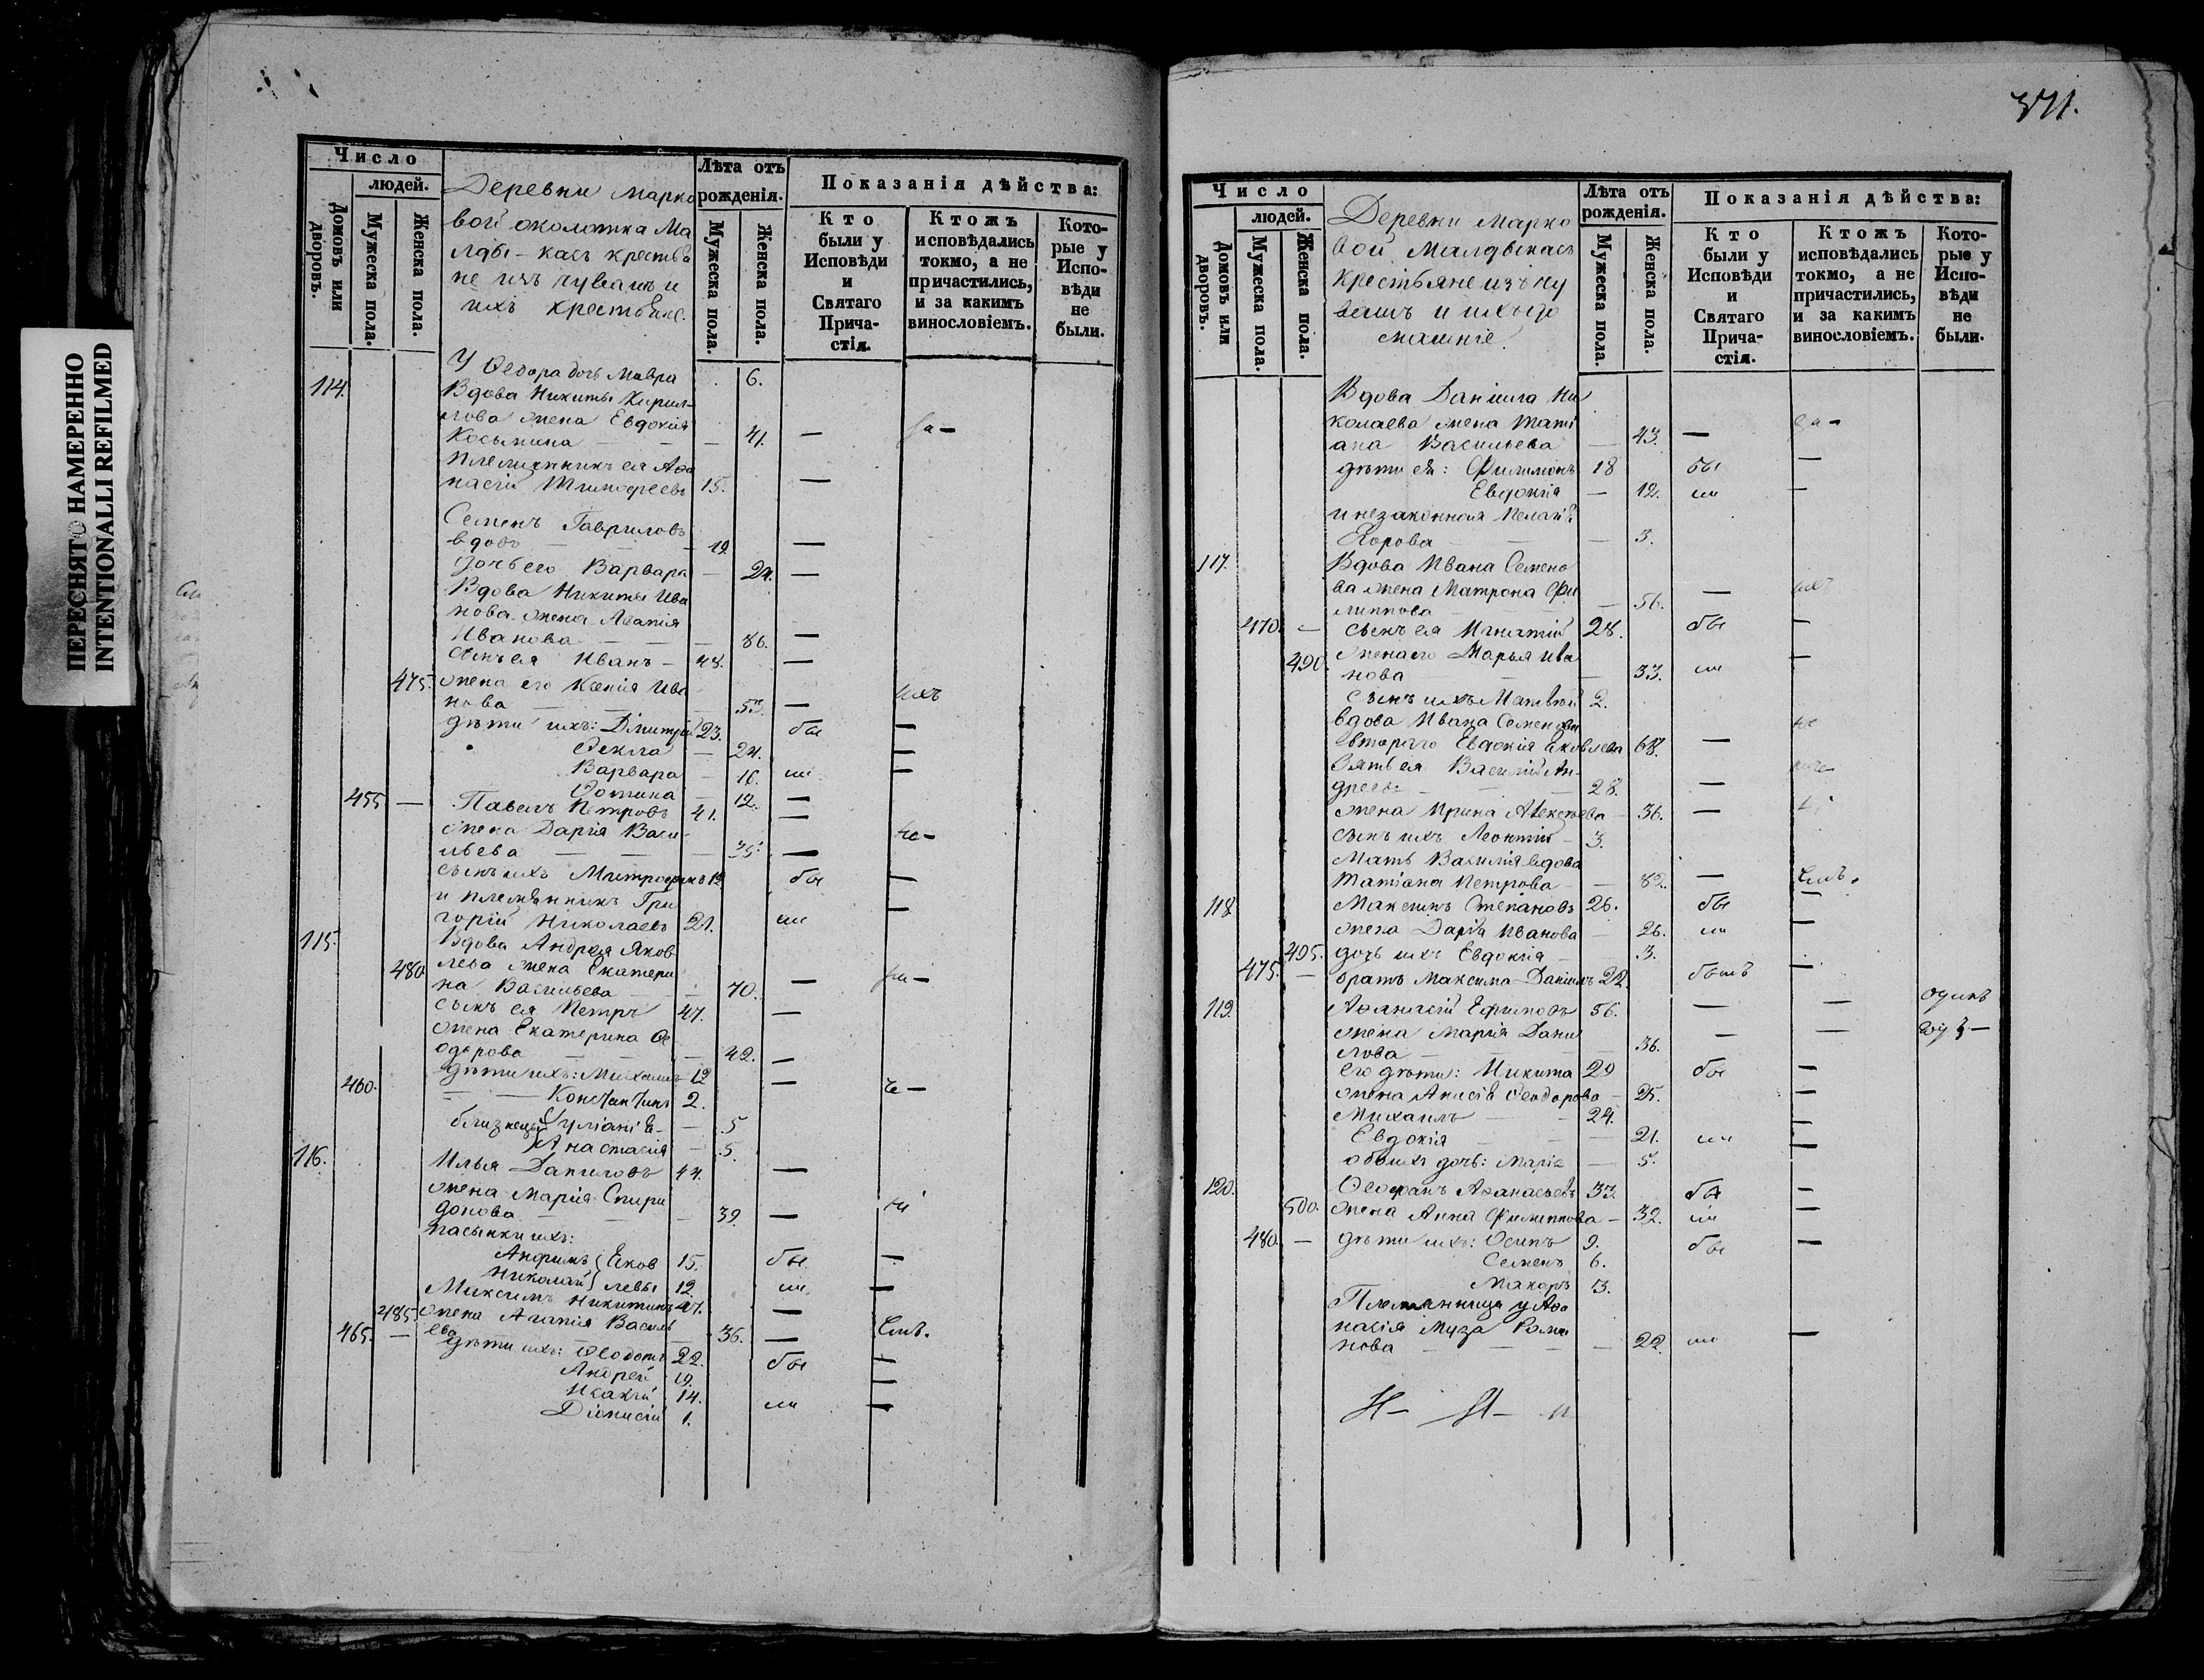 ПЕРЕСНЯТО НАМЕРЕННО
INTENTIONALLI REFILMED
Число
людей.
Домовъ или дворовъ.
Мужеска пола.
Женска пола.
Деревни Марко
вой околотка Ма
лды-касъ крестья
не изъ чувашъ и
ихъ
Лѣта отъ рожденія.
Мужеска пола.
Женска пола.
Показанія дѣйства:
Кто были у Исповѣди и Святаго Прича-стія.
Ктожъ исповѣдались токмо, а не причастились, и за какимъ винословіемъ.
Кото-рые у Испо-вѣди не были.
У Ѳеодора дочь Мавра 6.
114. Вдова Никиты Кирил-
лова жена Евдокия
Косьмина — — 41. —
Племянникъ ея Аѳа
насій Тимофеевъ 15. —
Семенъ Гавриловъ
вдовъ — 19. —
Дочь его Варвара — 24. —
Вдова Никиты Ива
нова жена Агапия
Иванова — — 86. —
Сынъ ея Иванъ — 48. —
475. жена его Ксенія Ива
нова — 53. — ихъ
дѣти ихъ: Димитрій 23. бы —
Ѳекла — 24. —
Варвара — 16. ли —
Фотина — 12. —
455 — Павелъ Петровъ 41. —
жена Дарія Васи-
льева — — 35. —
сынъ ихъ Митрофанъ 12 бы —
и племянникъ Гри
горій Николаевъ 21. ли —
115. Вдова Андрея Яков
480 лева жена Екатери
на Васильева — 70. —
сынъ ея Петръ 47. —
жена Екатерина Ѳе
одорова — — 42. —
460. дѣти ихъ: Михаилъ 12 —
Константинъ 2.
близнецы Іуліанія — 5
Анастасія — 5.
116. Илья Даниловъ 44. —
жена Марія Спири
донова — — 39. —
пасынки ихъ:
Анфимъ Яков 15. бы —
Николай левы 12. ли —
Максимъ Никитинъ 47. —
485. жена Агапія Василь
465. — ева — 36. —
дѣти ихъ: Ѳедотъ 22. бы —
Андрей 19. —
Исакій 14. ли —
Діонисій 1.
371.
Число
людей.
Домовъ или дворовъ.
Мужеска пола.
Женска пола.
Деревни Марко
вой Малдыкасъ
крестьяне изъ чу
вашъ и ихъ до
машніе.
Лѣта отъ рожденія.
Мужеска пола.
Женска пола.
Показанія дѣйства:
Кто были у Исповѣди и Святаго Прича-стія.
Ктожъ исповѣдались токмо, а не причастились, и за какимъ винословіемъ.
Кото-рые у Испо-вѣди не были.
Вдова Даніила Ни
колаева жена Таті
ана Васильева — 43. —
дѣти ея: Филимонъ 18 бы —
Евдокія — 12. ли —
и незаконная Пелагія
Егорова — — 3.
117. Вдова Ивана Семено
ва жена Матрона Фи
липпова — 56. — ихъ
470. — сынъ ея Игнатій 28. бы —
490. жена его Марья Ива
нова — — 33. ли —
сынъ ихъ Матвѣй 2.
вдова Ивана Семенова
втораго Евдокія Яковлева 68. —
Зять ея Василій Ан-
дреевъ — 28. —
жена Ирина Алексѣева — 36. —
сынъ ихъ Леонтій — 3.
Мать Василія вдова
Татіана Петрова — 82. —
118. Максимъ Степановъ 26. бы —
жена Дарія Иванова — 26. ли —
495. дочь ихъ Евдокія — 3.
475. — братъ Максима Даніилъ 22. бытъ —
119. Аѳанасій Ефимовъ 56. — —
жена Марія Дани
лова — — 36. — —
его дѣти: Никита 29 бы —
жена Анисія Ѳеодорова — 25. —
Михаилъ — 24. —
Евдокія — 21. ли —
обоихъ дочь: Марія — 5.
120. Ѳеофанъ Аѳанасьевъ 33. бы —
500. жена Анна Филиппова — 32. ли —
480 — дѣти ихъ: Осипъ 9. бы —
Семенъ 6.
Макаръ 3.
Племянница у Аѳа
насія Муза Рома
нова — — 22. ли —